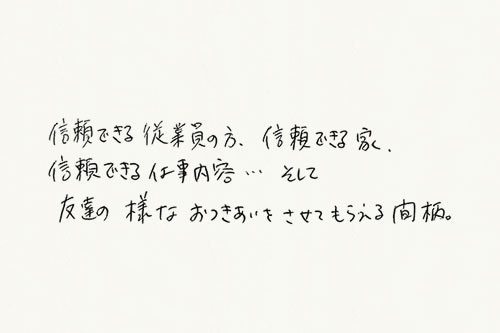 信頼できる従業員の方、信頼できる家、
信頼できる仕事内容… そして
友達の様なおつきあいをさせてもらえる間柄。